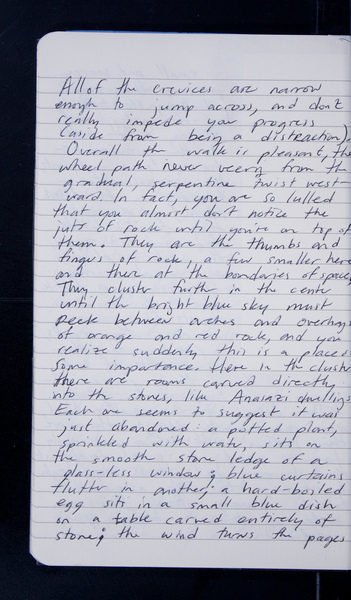 All of the crevices are narrow
enough to jump across, and don't
really impede your progress
(aside from being a distraction).
Overall the walk is pleasant, the
wheel path never veering from the
gradual, serpentine twist west-
ward. In fact, you are so lulled
that you almost don't notice the
juts of rock until you're on top of
them. They are the thumbs and
fingers of rock, a few smaller here
and there at the boundaries of space.
They cluster further in the center
until the bright blue sky must
peek between arches and overhangs
of orange and red rock, and you
realize suddenly this is a place of
some importance. Here in the cluster
there are rooms carved directly
into the stones, like Anasazi dwellings.
Each one seems to suggest it was
just abandoned: a potted plant,
sprinkled with water, sits on
the smooth stone ledge of a
glass-less window; blue curtains
flutter in another; a hard-boiled
egg sits in a small blue dish
on a table carved entirely of
stone; the wind turns the pages